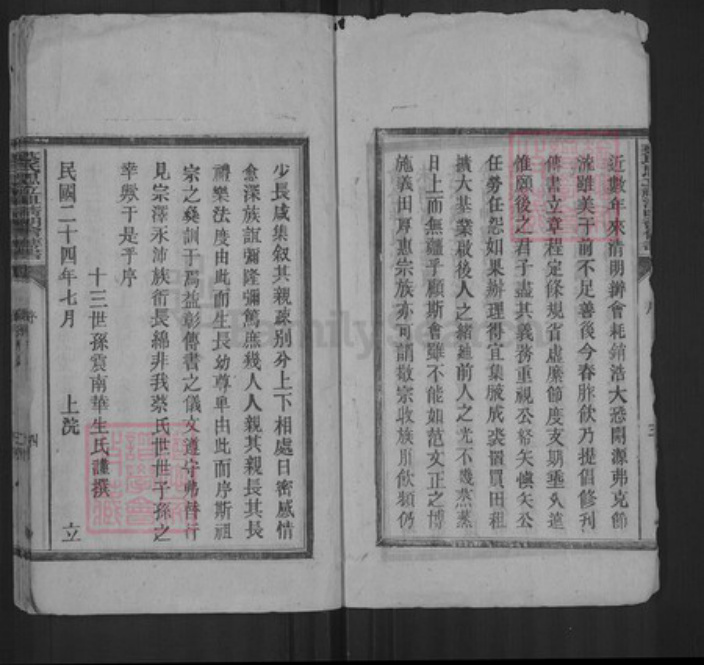 近數年來清明辦會耗銷浩大恐開源弗克節
流雖美于前不足善後今春胙飲乃提倡修刋
傳書立章程定條規省虛糜節度支期垂久遠
惟願後之君子盡其義務重視公帑矢愼矢公
任勞任怨如果辦理得宜集腋成裘個買田租
擴大基業啟後人之緒纘前人之光不幾蒸蒸
日上而無疆乎顧斯會雖不能如范文正之博
施義田厚惠宗族亦可謂敬宗收族胙飲頻仍
少長咸集叙其親疎別分上下相處日密感情
愈深族誼彌隆彌篤庶幾人人親其親長其長
禮樂法度由此而生長幼尊卑由此而序斯祖
宗之彝訓于焉益彰傳書之儀文遵守弗替行
見宗澤永沛族衍長綿非我蔡氏世世子孫之
幸歟于是乎序
十三世孫震南華生氏謹撰
民國二十四年七月 上浣 立
序
四